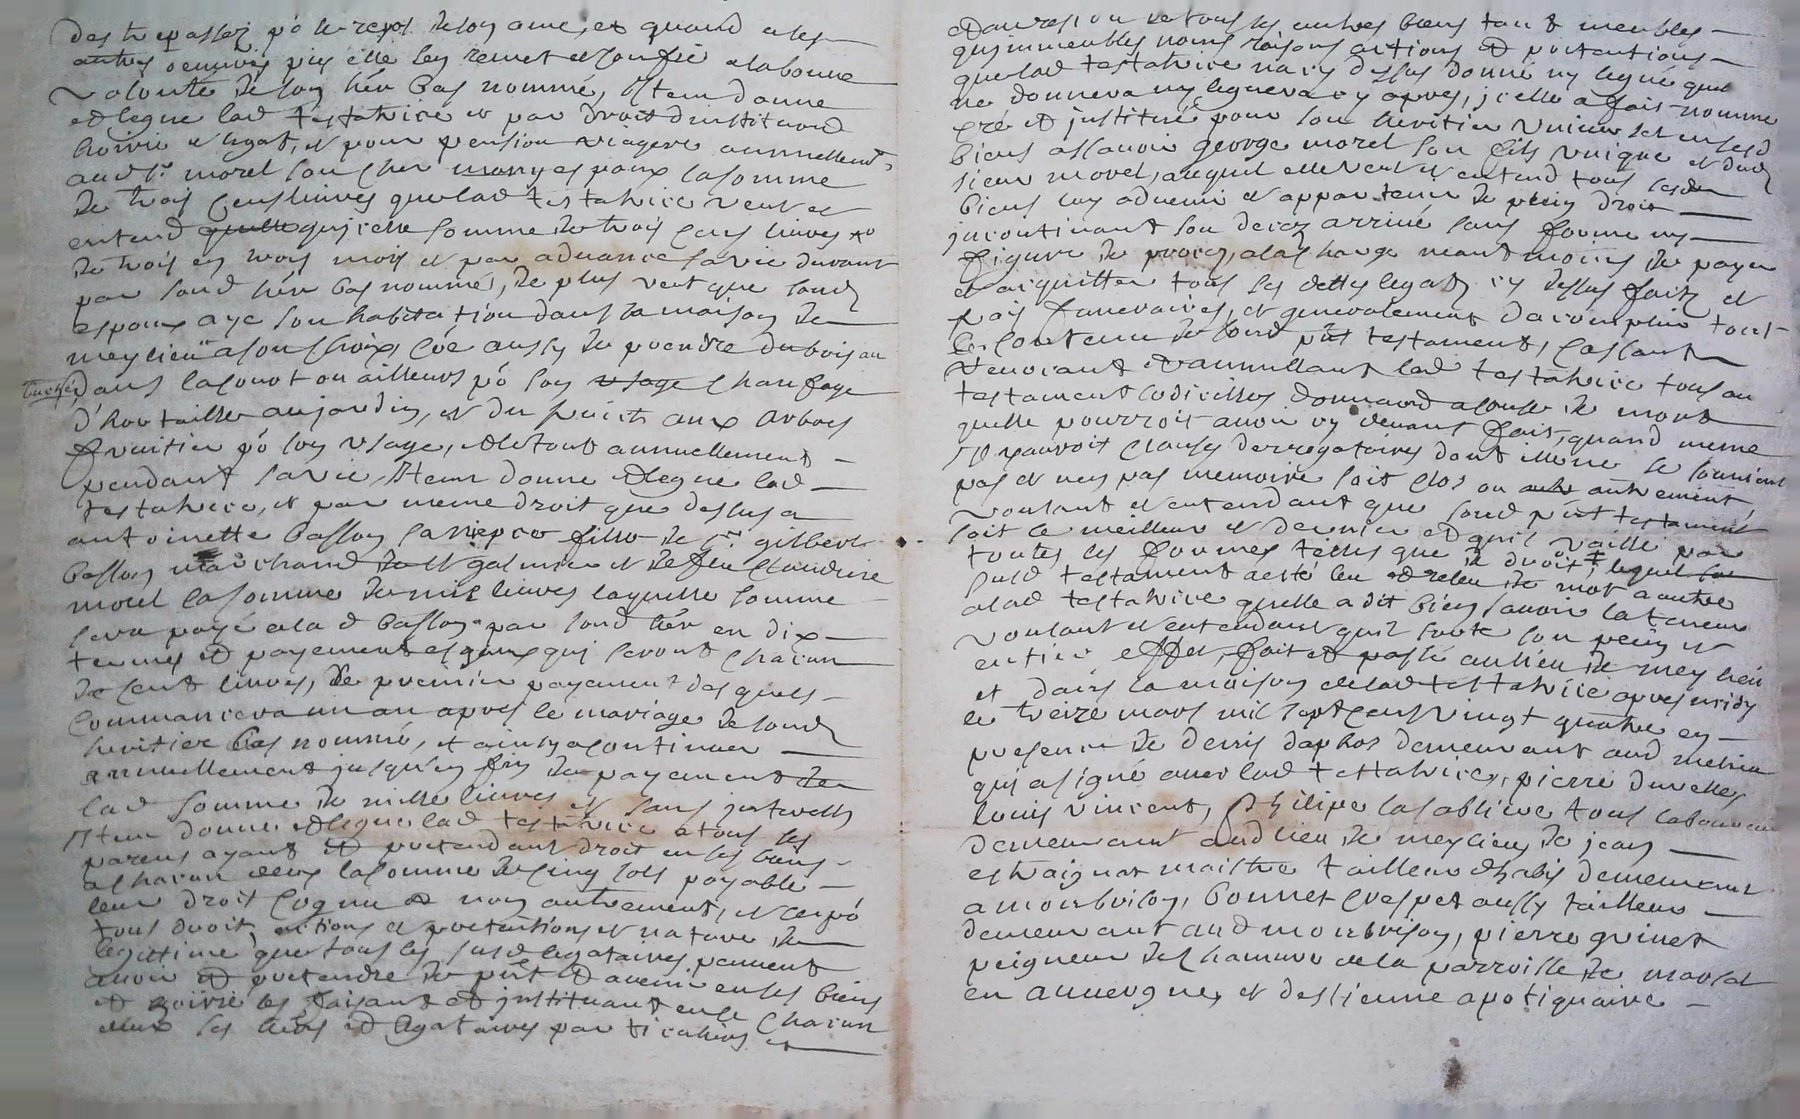 des trepassez po le repos de son ame, et quand a les
autres oeuvres pies elle sen remet et confie a la bonne
volonté de son hér bas nommé, Item donne
et legue lad testatrice et par droit dinstituon
hoirie et legat, et pour pension viagere annuellemt
aud sr morel son cher mary et epoux la somme
de trois cens livres que lad testatrice veut et
entend quelle quicelle somme de trois cens livres
de trois en trois mois et par advance sa vie durant
par sond hér bas nommé, de plus veut que sond
espoux aye son habitation dans sa maison de
meylieu a son choix, coe aussy de prendre du bois au
dans la ou ailleurs po son usage chaufage
d'hortaille au jardin, et du fruict aux arbres
fruitier po son usage, et le tout annuellement
pendant sa vie, Item donne et legue lad
testatrice, et par meme droit que dessus a
antoinette basson sa niepce fille de sr gilbert
basson marchand de st galmier et de feu claudine
morel la somme de mil livres laquelle somme
sera payé a lad basson par sond hér en dix
termes et payements egaux qui seront chacun
de cent livres, le premier payement desquels
commancera un an apres le mariage de sond
heritier bas nommé, et ainsy a continuer
annuellement jusqu'en fin de payement de
lad somme de mille livres et sans interests
Item donne et legue lad testatrice a tous ses
parens ayant et pretendant droit en ses biens
a chacun deux la somme de cinq sols payable
leur droit cognu et non autrement, et ce po
tous droits actions et pretentions et nature de
legitime que tous les susd legataires peuvent
avoir et pretendre de pnt et avenir en ses biens
et hoirie les faisant et instituant en ce chacun
deux ses hérs et legataires particuliers et
de tous ses autres biens tant meubles
quimmeubles noms raisons actions et pretentions
que lad testatrice na cy dessus donné ny legué que
ne donnera ny leguera cy apres, icelle a fait nommé
créé et institué pour son heritier universel en sesd
biens assavoir george morel son fils unique et dud
sieur morel, auquel elle veut et entend tous sesd
biens luy advenir et appartenir de plein droit
incontinant son decez arrivé sans forme ny
figure de procez, a la charge neantmoins de payer
et acquitter tous les dettes legatz cy dessus faitz et
frais funeraires, et generalement daccomplir tout
le contenu de sond pnt testament, cassant
revocant et annullant lad testatrice tous au
testament codicilles donnaon a cause de mort
quelle pourroit avoir cy devant fait, quand meme
il y auroit clauses derrogatoires dont elle ne se souvient
pas et nen pas memoire soit clos ou autr autrement,
voulant et entendant que sond pnt testament
soit le meilleur et dernier et quil vaille par
toutes les formes telles que de droit, lequel
susd testament a esté leu et releu de mot a autre
a lad testatrice quelle a dit bien savoir la teneur
voulant et entendant quil sorte son plein et
entier effet, fait et passé au lieu de meylieu
et dans la maison de lad testatrice apres midy
le treize mars mil sept cens vingt quatre en
presence de denis daphos demeurant aud meylieu
qui a signé avec lad testatrice, pierre duvelles
louis vincent, philipe lasabliere tous laboureurs
demeurant aud lieu de meylieu de jean
estaignat maistre tailleur dhabis demeurant
a montbrison, bonnet crespet aussy tailleur
demeurant aud montbrison, pierre quinet
peigneur de chanvre de la parroisse de marsat
en auvergne, et destienne apotiquaire